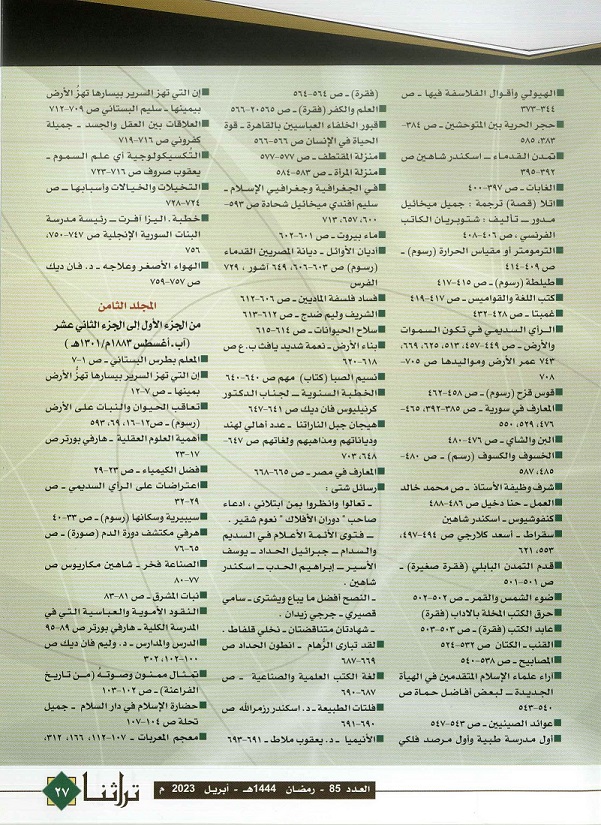 الهيولي وأقوال الفلاسفة فيها ـ ص
٣٤٤-٣٧٣
حجر الحرية بين المتوحشين ـ ص ٣٨٤-
٣٨٣، ٥٨٥
تمدن القدماء ــ اسكندر شاهين ص
٣٩٢-٣٩٥
الغابات ـ ص ٣٩٧-٤٠٠
اتلا (قصة) ترجمة : جميل ميخائيل
مدور ــ تأليف : شتوبريان الكاتب
الفرنسي ، ص ٤٠٦-٤٠٨
الترمومتر أو مقياس الحرارة (رسوم) ــ
ص ٤٠٩-٤١٤
طيلطة (رسوم) ــ ص ٤١٥-٤١٧
كتب اللغة والقواميس ــ ص ٤١٧-٤١٩
غمبتا ــ ص ٤٢٨-٤٣٢
الـرأي السديمي في تكون السموات
والأرض ـ ص ٤٤٩-٤٥٧، ٥١٣، ٦٢٥، ٦٦٩،
٧٤٣ عمر الأرض ومواليدها ص ٧٠٥-
٧٠٨
قوس قزح (رسوم) ــ ص ٤٥٨-٤٦٢
المعارف في سورية ــ ص ٣٨٥-٣٩٢، ٤٦٥-
٤٧٦، ٥٢٩، ٥٥٠
البن والشاي ــ ص ٤٧٦-٤٨٠
الخسوف والكسوف (رسم) ــ ص ٤٨٠-
٤٨٥، ٥٨٧
شرف وظيفة الأستاذ ــ ص محمد خالد
العمل ـ حنا دخيل ص ٤٨٦-٤٨٨
كنفوشيوس ــ اسكندر شاهين
سقراط ــ أسعد كلارجي ص ٤٩٤-٤٩٧،
٥٥٣، ٦٢١
قدم التمدن البابلي (فقرة صغيرة) ــ
ص ٥٠١-٥٠١
ضوء الشمس والقمر ــ ص ٥٠٢-٥٠٢
حرق الكتب المخلة بالاداب (فقرة)
عابد الكتب (فقرة) ــ ص ٥٠٣-٥٠٣
القنب ــ الكتان ص ٥٣٢-٥٢٤
المصابيح ــ ص ٥٣٨-٥٤٠
آراء علماء الإسلام المتقدمين في الهيأة
الجديـدة ــ لبعض أفاضل حماة ص
٥٤٠-٥٤٣
عوائد الصينيين ــ ص ٥٤٣-٥٤٧
أول مدرسة طبية وأول مرصد فلكي
(فقرة) ــ ص ٥٦٤-٥٦٤
العلم والكفر (فقرة) ــ ص ٢٠٥٦٥-٥٦٦
قبور الخلفاء العباسيين بالقاهرة ــ قوة
الحياة في الإنسان ص ٥٦٦-٥٦٦
منزلة المقتطف ــ ص ٥٧٧-٥٧٧
منزلة المرأة ــ ص ٥٨٣-٥٨٤
في الجغرافية وجغرافيي الإسلام ــ
سليم أفندي ميخائيل شحادة ص ٥٩٣-
٦٠٠، ٦٥٧، ٧١٣
ماء بيروت ــ ص ٦٠١-٦٠٢
أديان الأوائل ــ ديانة المصريين القدماء
(رسوم) ص ٦٠٣-٦٠٦، ٦٤٩ آشور ، ٧٢٩
الفرس
فساد فلسفة الماديين ــ ص ٦٠٦-٦١٢
الشريف وليم ضدج ــ ص ٦١٢-٦١٣
سلاح الحيوانات ــ ص ٦١٤-٦١٥
بناء الأرض ــ نعمة شديد يافث ب.ع ص
٦١٨-٦٢٠
نسيم الصبا (كتاب) مهم ص ٦٤٠-٦٤٠
الخطبة السنويـة ــ لجناب الدكتور
كرنيليوس فان ديك ص ٦٤١-٦٤٧
هيجان جبل الناراتنا ــ عدد أهالي لهند
ودياناتهم ومذاهبهم ولغاتهم ص ٦٤٧-
٦٤٨، ٧٠٣
المعارف في مصر ــ ص ٦٦٥-٦٦٨
رسائل شتى :
ـ تعالوا وانظروا بمن ابتلاني ، ادعاء
صاحب " دوران الأفلاك " نعوم شقير .
ــ فتوى الأئمة الأعلام في السديم
والسدام ــ جبرائيل الحداد ــ يوسف
الأسير ــ إبراهيم الحدب ــ اسكندر
شاهين .
ـ النصح أفضل ما يباع ويشترى ــ سامي
قصيري ــ جرجي زيدان .
ـ شهادتان متناقضتان ــ نخلي قلفاط .
لقد تبارى الرُهام ــ انطون الحداد ص
٦٦٩-٦٨٧
لغة الكتب العلمية والصناعية ــ ص
٦٨٧-٦٩٠
فلتات الطبيعة ــ د. اسكندر رزمرالله ص
٦٩٠-٦٩١
الأنيميا ــ د. يعقوب ملاط ــ ٦٩١-٦٩٣
إن التي تهز السرير بيسارها تهزُ الأرض
بيمينها ــ سليم البستاني ص ٧٠٩-٧١٢
العلاقات بين العقل والجسد ــ جميلة
كفروني ص ٧١٦-٧١٩
التُكسيكولوجية أي علم السموم ــ
يعقوب صروف ص ٧١٦-٧٢٣
التخيلات والخيالات وأسبابها ــ ص
٧٢٤-٧٢٨
خطبة . اليزا أفرت ــ رئيسة مدرسة
البنات السورية الإنجلية ص ٧٤٧-٧٥٠،
٧٥٦
الهواء الأصغر وعلاجه ــ د. فان ديك
ص ٧٥٧-٧٥٩
المجلد الثامن
من الجزء الأول إلى الجزء الثاني عشر
(آب ، أغسطس ١٨٨٣م/ ١٣٠١هـ)
المعلم بطرس البستاني ــ ص ١-٧
إن التي تهز السرير بيسارها تهزُ الأرض
بمينها ــ ص ٧-١٢
تعاقب الحيوان والنبات على الأرض
(رسوم) ــ ص ١٢-١٦، ٦٩، ٥٩٣
أهمية العلوم العقلية ــ هارفي بورتر ص
١٧-٢٣
فضل الكيمياء ــ ص ٢٣-٢٩
اعتراضات على الرأي السديمي ــ ص
٢٩-٣٢
سيبيرية وسكانها (رسوم) ــ ص ٣٣-٤٠
هرفي مكتشف دورة الدم (صورة) ــ ص
٦٥-٧٦
الصناعة فخر ــ شاهين مكاريوس ص
٧٧-٨٠
نبات المشرق ــ ص ٨١-٨٣
النقود الأموية والعباسية التي في
المدرسة الكلية ــ هارفي بورتر ص ٨٩-٩٥
الدرس والمدارس ــ د. وليم فان ديك ص
١٠٠-١٠٢، ٣٠٢
تمثـال ممنون وصوتـهُ (مـن تـاريخ
الفراعنة) ــ ص ١٠٢-١٠٣
حضارة الإسلام في دار السلام ــ جميل
نحلة ص ١٠٤-١٠٧
معجم المعربات ــ ١٠٧-١١٢، ١٦٦، ٣١٢،
العدد 85 - رمضان 1444هـ - أبريل 2023 م
تراثنا
٢٧